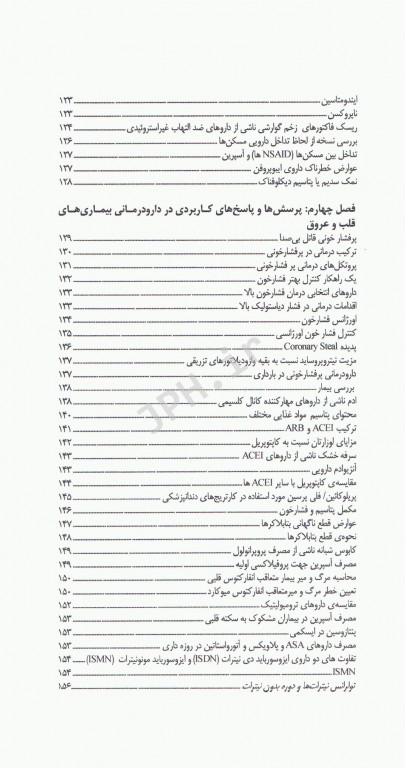 ایندومتاسین ۱۲۳
ناپروکسن ۱۲۳
ریسک فاکتورهای زخم گوارشی ناشی از داروهای ضد التهاب غیراستروئیدی ۱۲۴
بررسی نسخه از لحاظ تداخل دارویی مسکن‌ها ۱۲۶
تداخل بین مسکن‌ها (NSAID ها) و آسپرین ۱۲۷
عوارض خطرناک داروی ایبوپروفن ۱۲۷
نمک سدیم یا پتاسیم دیکلوفناک ۱۲۸
فصل چهارم: پرسش‌ها و پاسخ‌های کاربردی در دارودرمانی بیماری‌های
قلب و عروق
پرفشار خونی قاتل بی‌صدا ۱۲۹
ترکیب درمانی در پرفشارخونی ۱۳۰
پروتکل‌های درمانی پر فشارخونی ۱۳۱
یک راهکار کنترل بهتر فشارخون ۱۳۲
داروهای انتخابی درمان فشارخون بالا ۱۳۳
اقدامات درمانی در فشار دیاستولیک بالا ۱۳۳
اورژانس فشارخون ۱۳۴
کنترل فشار خون اورژانسی ۱۳۵
پدیده Coronary Steal ۱۳۶
مزیت نیتروپروساید نسبت به بقیه وازودیلاتورهای تزریقی ۱۳۷
دارودرمانی پرفشارخونی در بارداری ۱۳۷
بررسی بیمار ۱۳۸
ادم ناشی از داروهای مهارکننده کانال کلسیمی ۱۳۸
محتوای پتاسیم مواد غذایی مختلف ۱۴۰
ترکیب ACEI و ARB ۱۴۱
مزایای لوزارتان نسبت به کاپتوپریل ۱۴۲
سرفه خشک ناشی از داروهای ACEI ۱۴۳
آنژیوادم دارویی ۱۴۳
مقایسه‌ی کاپتوپریل با سایر ACEI ها ۱۴۴
پریلوکائین/ فلی پرسین مورد استفاده در کارتریج‌های دندانپزشکی ۱۴۵
مکمل پتاسیم و فشارخون ۱۴۶
عوارض قطع ناگهانی بتابلاکرها ۱۴۷
نحوه‌ی قطع بتابلاکرها ۱۴۸
کابوس شبانه ناشی از مصرف پروپرانولول ۱۴۹
مصرف آسپرین جهت پروفیلاکسی اولیه ۱۴۹
محاسبه مرگ و میر بیمار متعاقب انفارکتوس قلبی ۱۵۰
تعیین خطر مرگ و میرمتعاقب انفارکتوس میوکارد ۱۵۰
مقایسه‌ی داروهای ترومبولیتیک ۱۵۲
مصرف آسپرین در بیماران مشکوک به سکته قلبی ۱۵۳
پنتازوسین در ایسکمی ۱۵۳
مصرف داروهای ASA و پلاویکس و آتورواستاتین در روزه داری ۱۵۳
تفاوت های دو داروی ایزوسورباید دی نیترات (ISDN) و ایزوسورباید مونونیترات (ISMN) ۱۵۴
ISMN ۱۵۴
تولرانس نیترات‌ها و دوره بدون نیترات ۱۵۶
JPH.ir